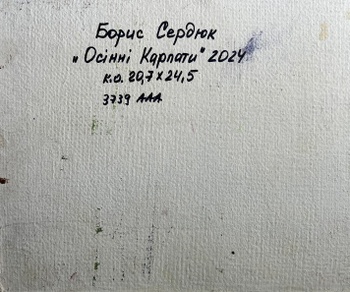 Борис Сердюк
"Осінні Карпати" 2024
к.о. 20,7 х 24,5
3739 ААА